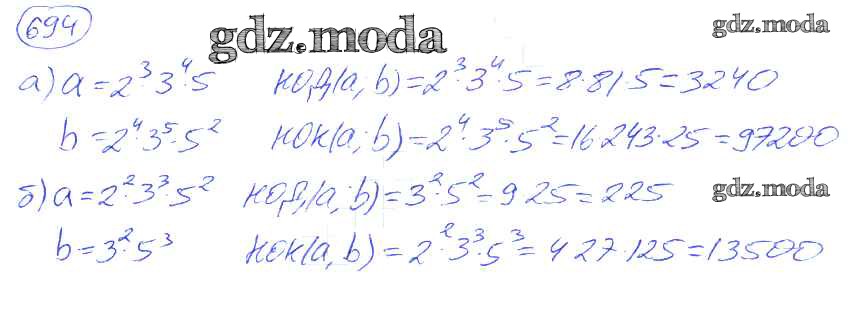 694
gdz.moda
gdz.moda
а) a = 2³·3⁴·5 НОД(a; b) = 2³·3⁴·5 = 8·81·5 = 3240
b = 2⁴·3⁵·5² НОК(a; b) = 2⁴·3⁵·5² = 16·243·25 = 97200
б) a = 2²·3³·5² НОД(a; b) = 3²·5² = 9·25 = 225
gdz.moda
b = 3²·5³ НОК(a, b) = 2²·3³·5³ = 4·27·125 = 13500